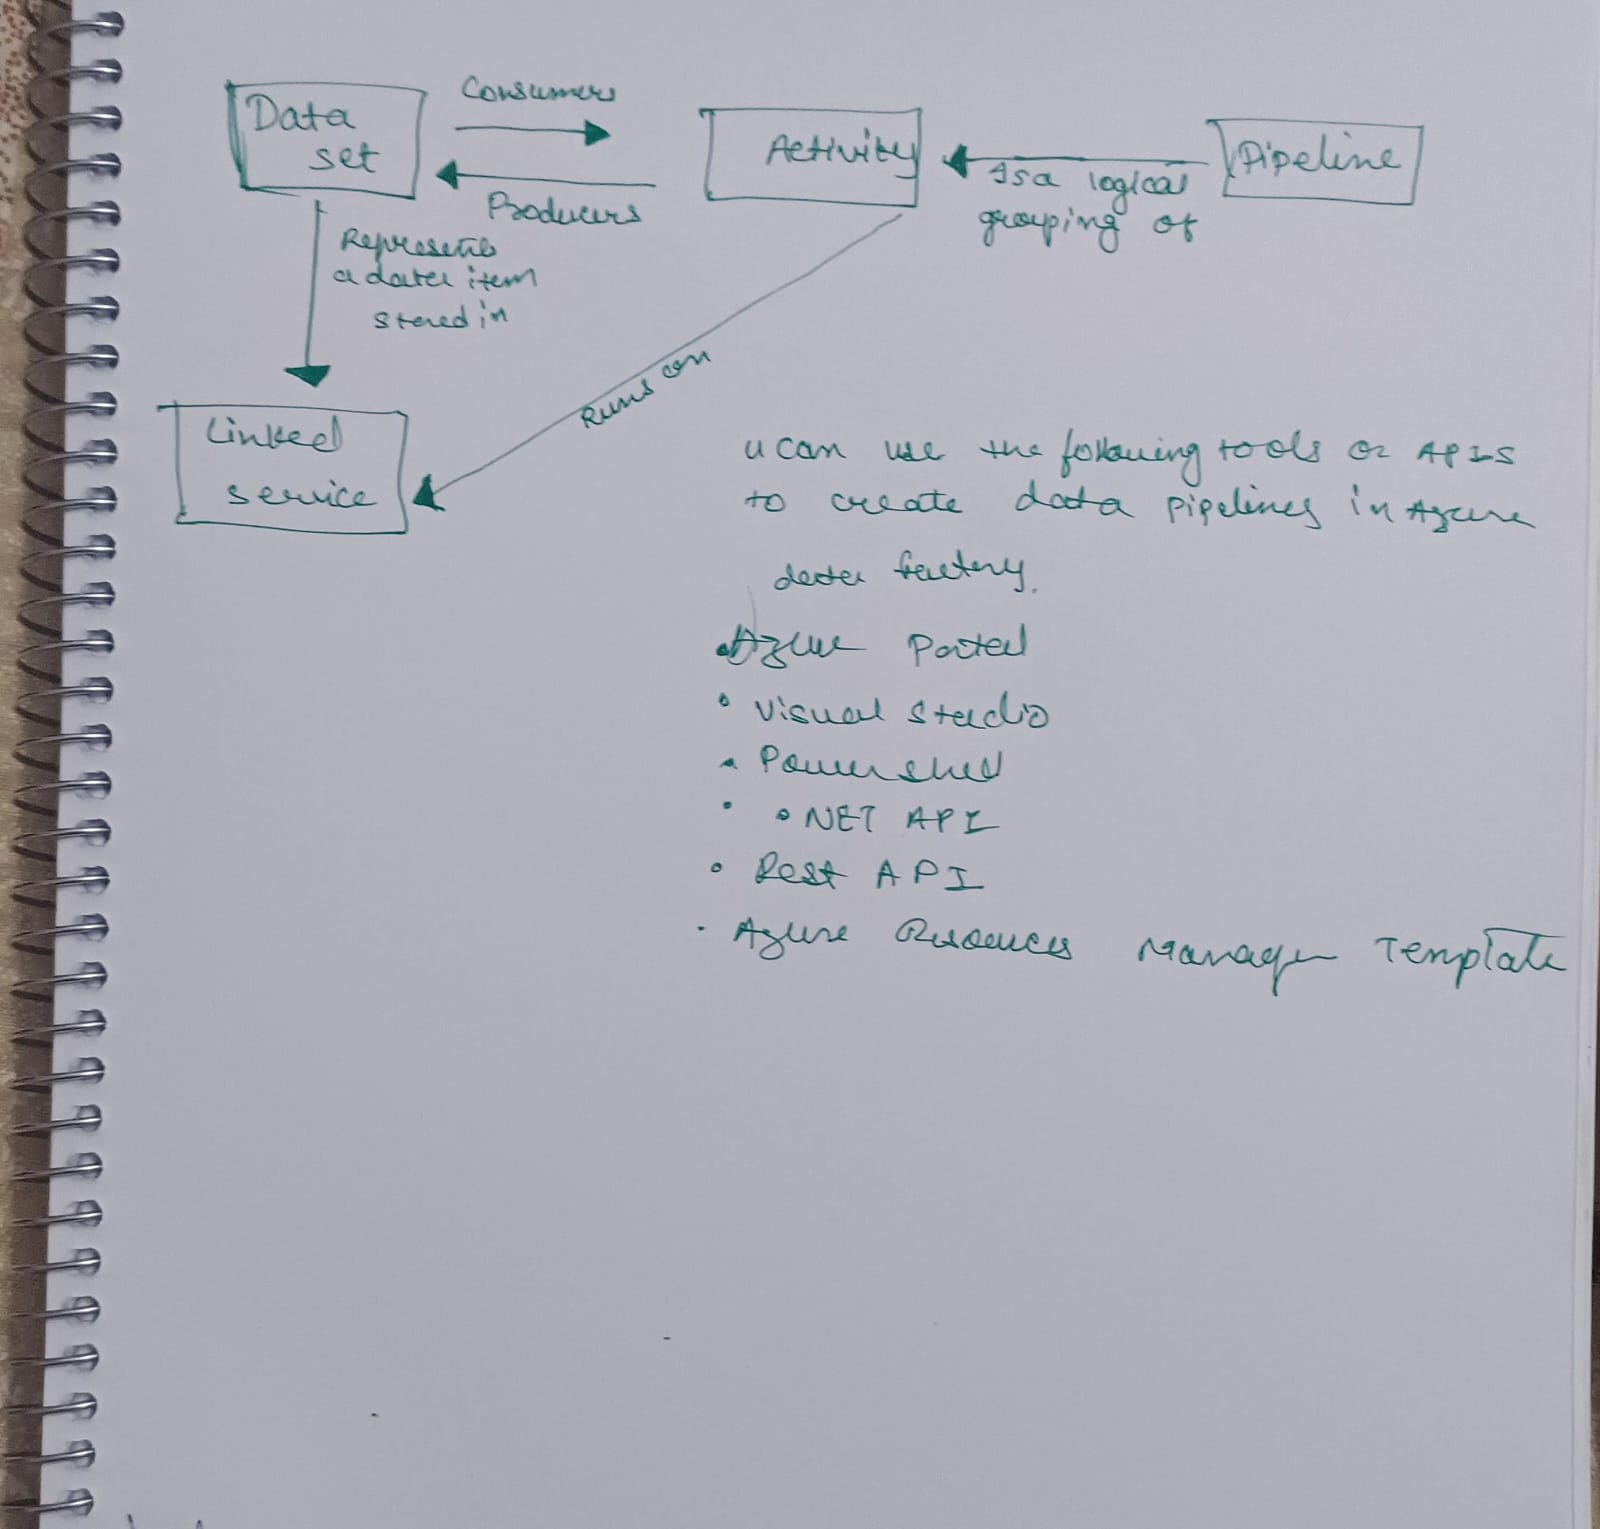 Data
set
Consumers
Producers
Activity
Is a logical
grouping of
Pipeline
Represents
a data item
stored in
Runs on
Linked
service
u can use the following tools or APIS
to create data pipelines in Azure
data factory.
• Azure Portal
• Visual Studio
• Powershell
• .NET API
• Rest API
• Azure Resources Manager Template